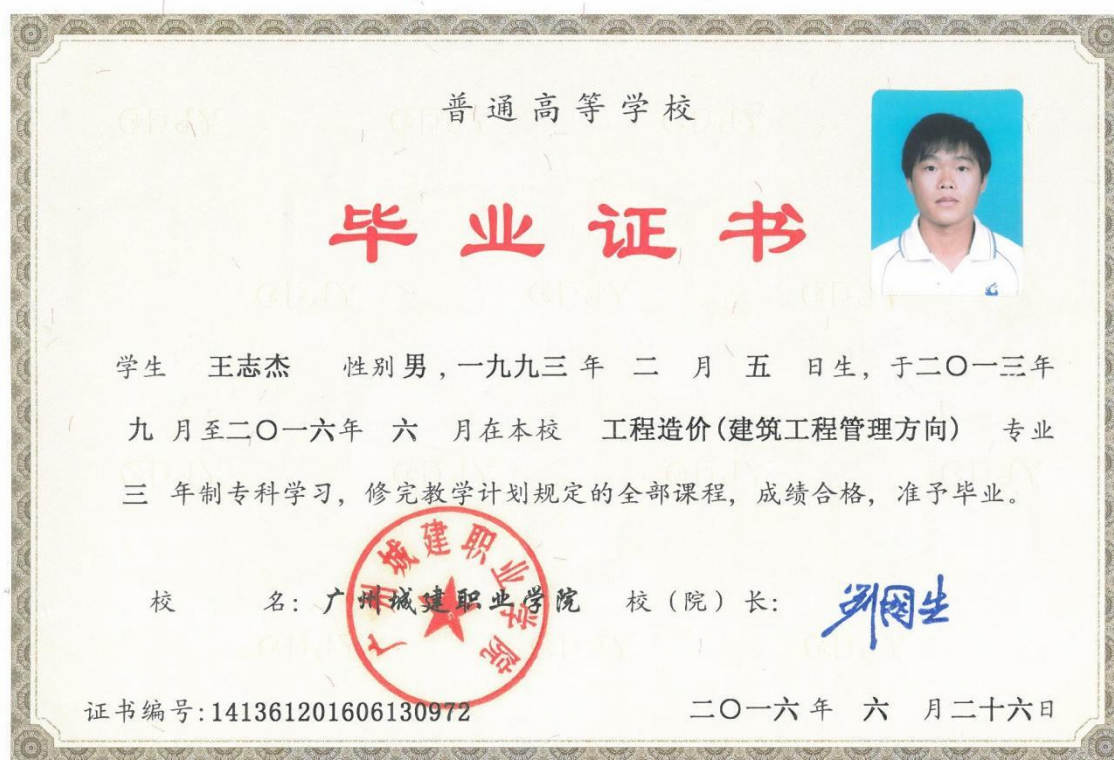 普通高等学校
毕业证书
学生 王志杰 性别男,一九九三年 二 月 五 日生,于二〇一三年
九 月至二〇一六年 六 月在本校 工程造价(建筑工程管理方向) 专业
三 年制专科学习,修完教学计划规定的全部课程,成绩合格,准予毕业。
广州城建职业学院
校 名:广州城建职业学院 校(院)长:刘国生
证书编号:141361201606130972 二〇一六年 六 月二十六日